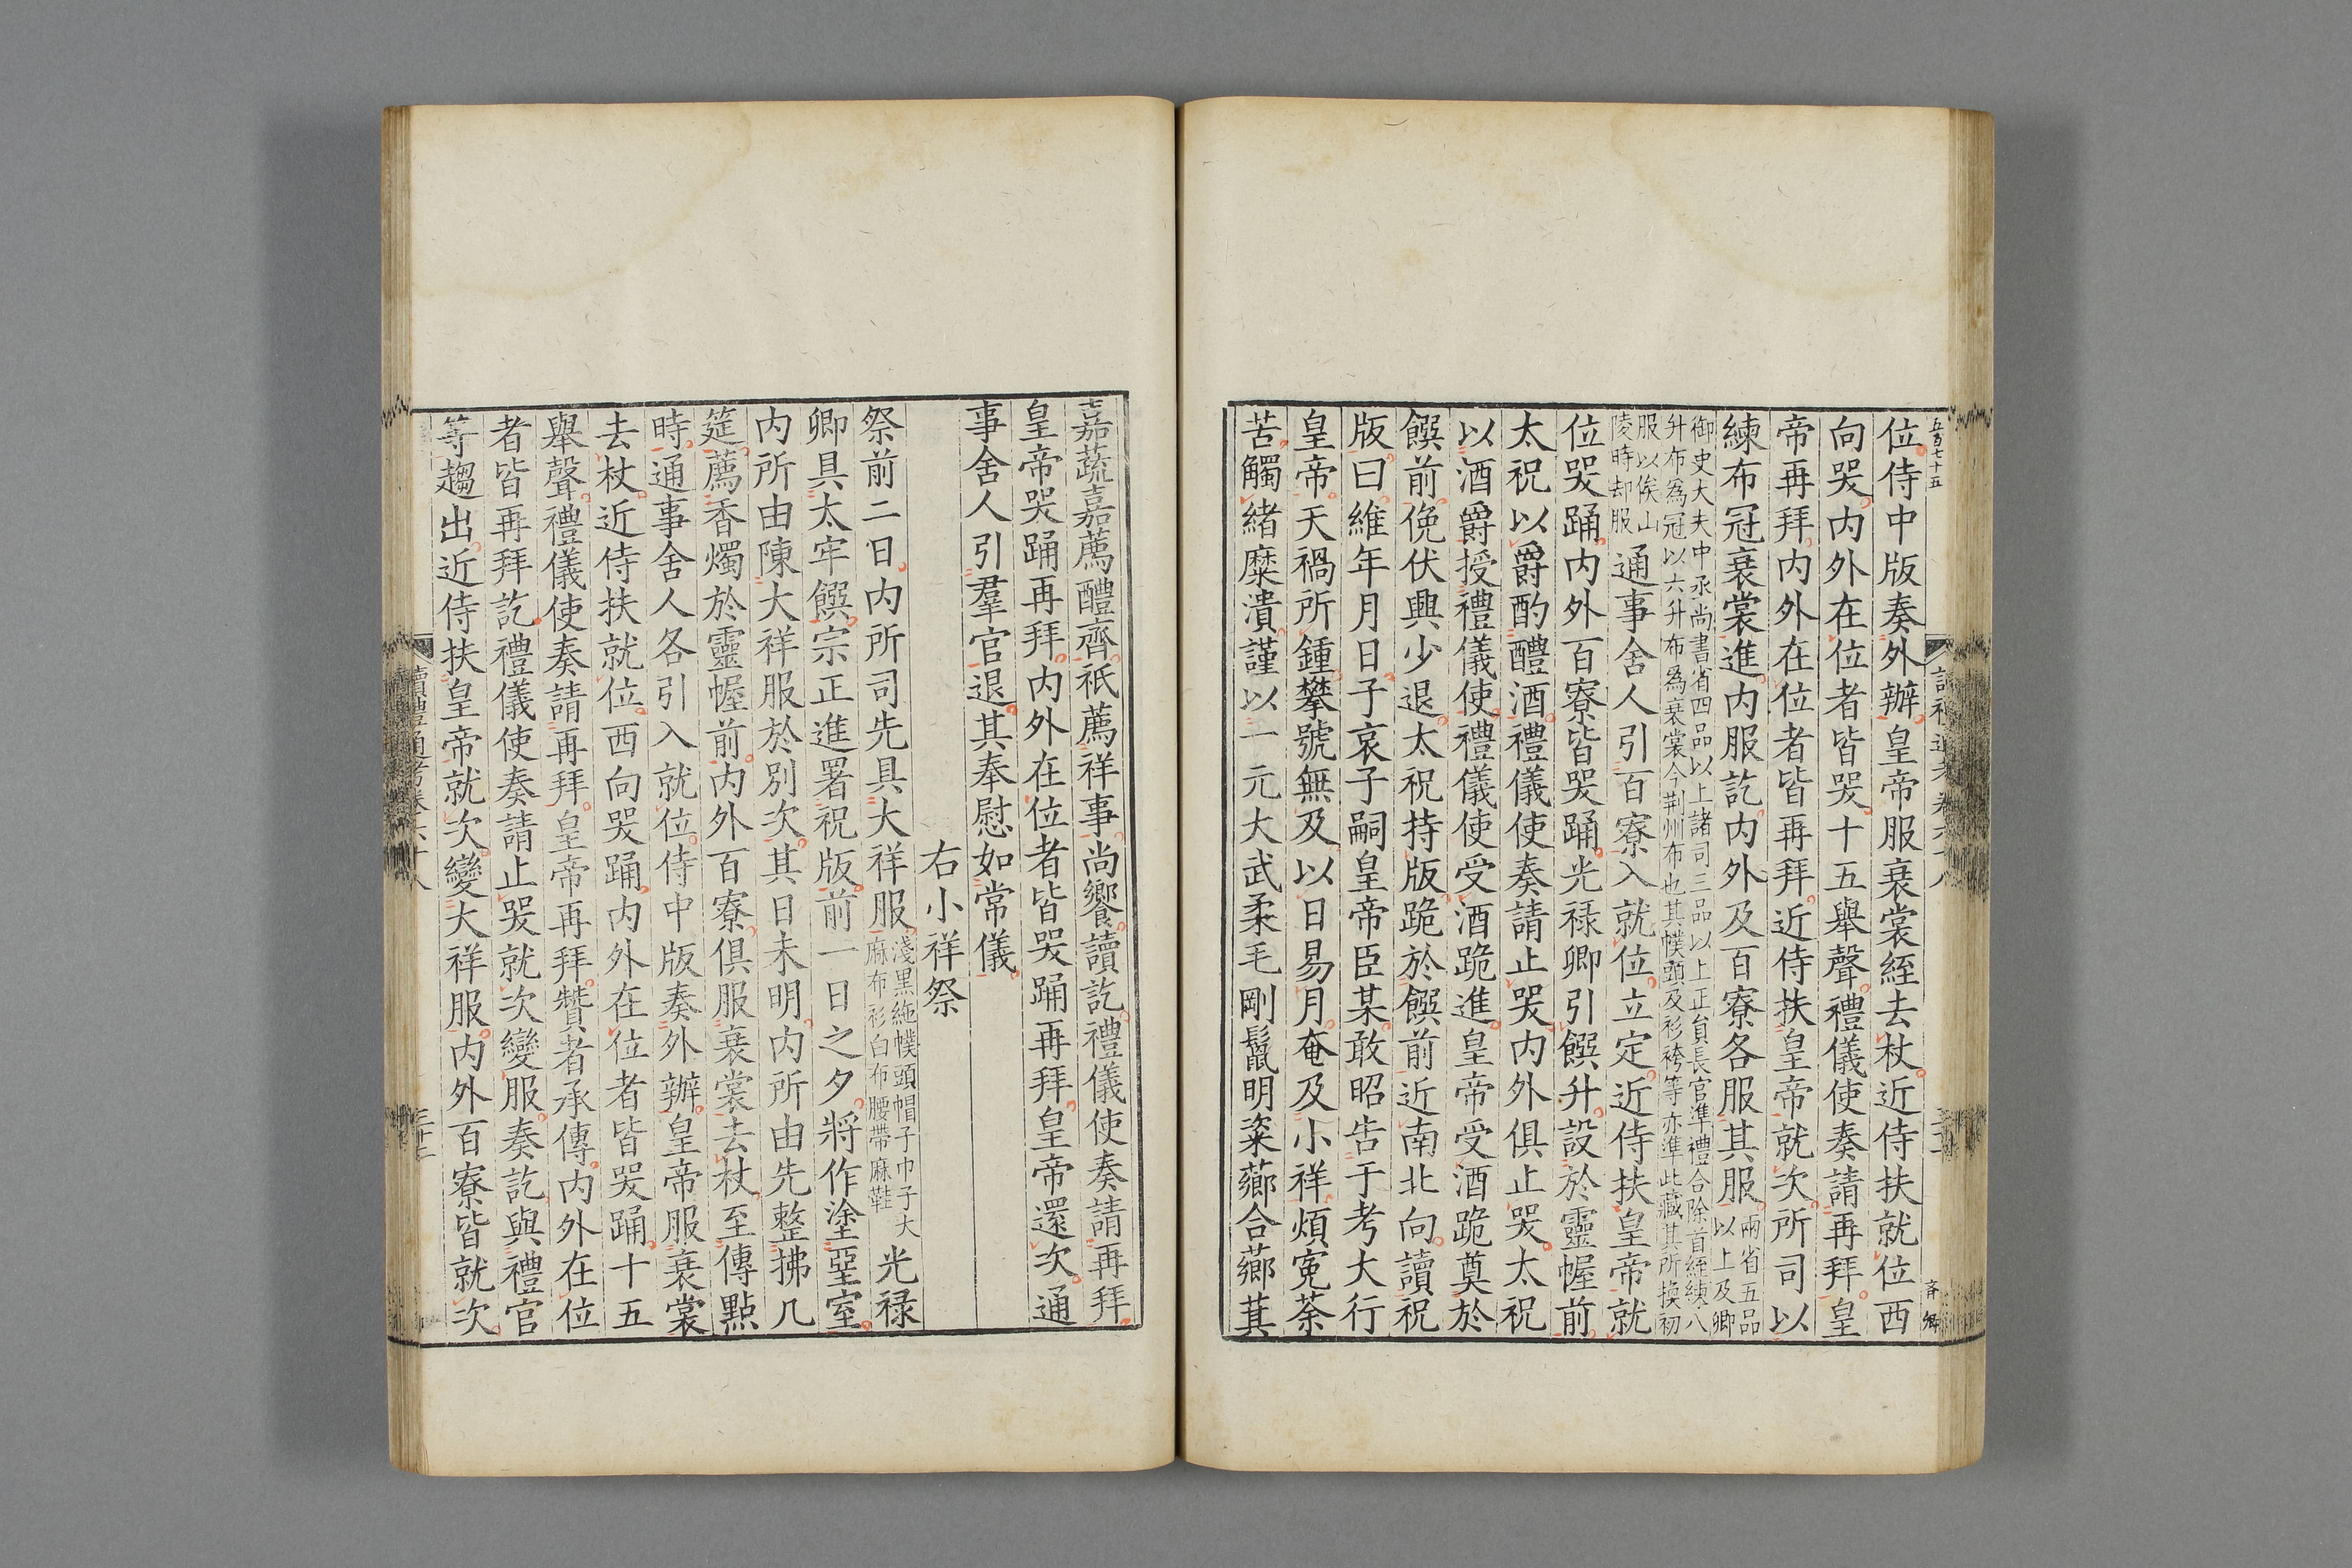 五百七十五
位侍中版奏外辦皇帝服衰裳絰去杖近侍扶就位西
向哭內外在位者皆哭十五舉聲禮儀使奏請再拜皇
帝再拜內外在位者皆再拜近侍扶皇帝就次所司以
練布冠衰裳進內服訖內外及百寮各服其服兩省五品以上及卿
御史大夫中丞尚書省四品以上諸司三品以上正員長官準禮合除首絰練八
升布為冠以六升布為衰裳今荆州布也其幞頭及衫袴等亦準此藏其所換初
服以俟山陵時却服通事舍人引百寮入就位立定近侍扶皇帝就
位哭踊內外百寮皆哭踊光禄卿引饌升設於靈幄前
太祝以爵酌醴酒禮儀使奏請止哭內外俱止哭太祝
以酒爵授禮儀使禮儀使受酒跪進皇帝受酒跪奠於
饌前俛伏興少退太祝持版跪於饌前近南北向讀祝
版曰維年月日子哀子嗣皇帝臣某敢昭告于考大行
皇帝天禍所鍾攀號無及以日易月奄及小祥煩寃荼
苦觸緒糜潰謹以一元大武柔毛剛鬣明粢薌合薌萁
嘉蔬嘉薦醴齊祇薦祥事尚饗讀訖禮儀使奏請再拜
皇帝哭踊再拜內外在位者皆哭踊再拜皇帝還次通
事舍人引羣官退其奉慰如常儀
右小祥祭
祭前二日內所司先具大祥服淺黑絁幞頭帽子巾子大麻布衫白布腰帶麻鞋光禄
卿具太牢饌宗正進署祝版前一日之夕將作塗堊室
內所由陳大祥服於別次其日未明內所由先整拂几
筵薦香燭於靈幄前內外百寮俱服衰裳去杖至傳點
時通事舍人各引入就位侍中版奏外辦皇帝服衰裳
去杖近侍扶就位西向哭踊內外在位者皆哭踊十五
舉聲禮儀使奏請再拜皇帝再拜贊者承傳內外在位
者皆再拜訖禮儀使奏請止哭就次變服奏訖與禮官
等趨出近侍扶皇帝就次變大祥服內外百寮皆就次
讀禮通考卷六十八